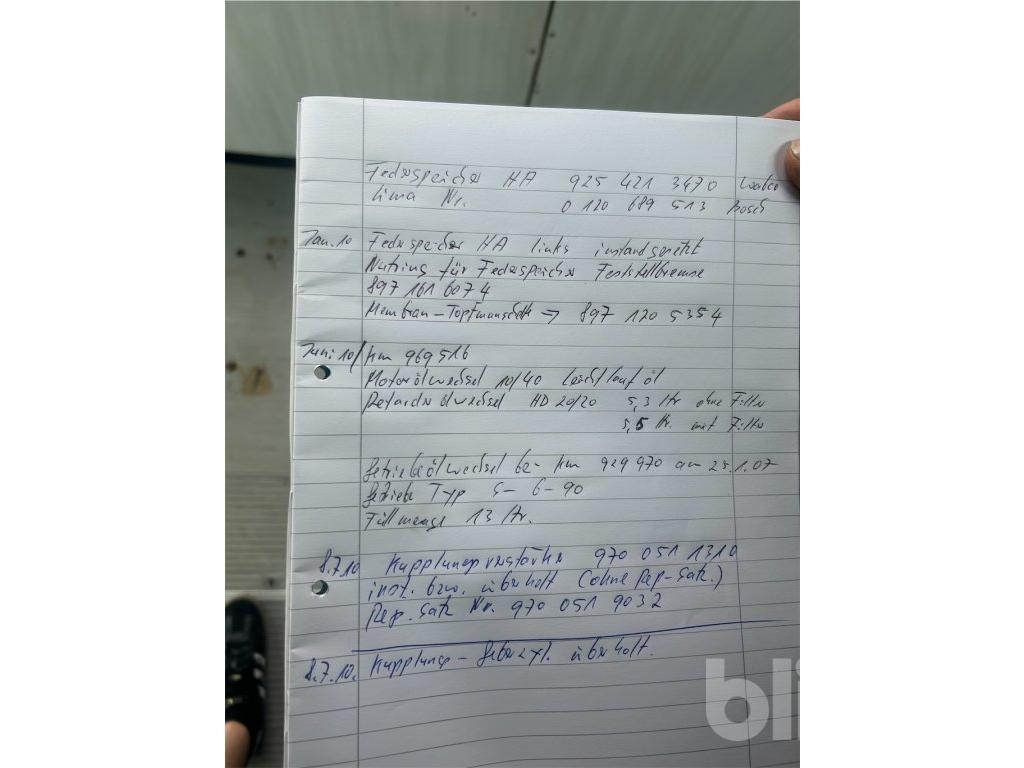 Federspeicher HA 925 421 3470 Wabco
Lima Nr. 0 120 689 513 Bosch
Jan. 10 Federspeicher HA links instandgesetzt
Nutring für Federspeicher Feststellbremse
897 161 607 4
Membran - Topfmanschette → 897 120 535 4
Juni 10/ km 969 516
Motorölwechsel 10/40 Leichtlauföl
Retarderölwechsel HD 20/20 5,3 ltr ohne Filter
5,5 ltr. mit Filter
Getriebeölwechsel bei km 929 970 am 25.1.07
Getriebe Typ S-6-90
Füllmenge 13 ltr.
8.7.10 Kupplungsverstärker 970 051 1310
inst. bzw. überholt (ohne Rep-Satz.)
Rep. Satz Nr. 970 051 9032
8.7.10. Kupplungs - Geberzyl. überholt.
bli